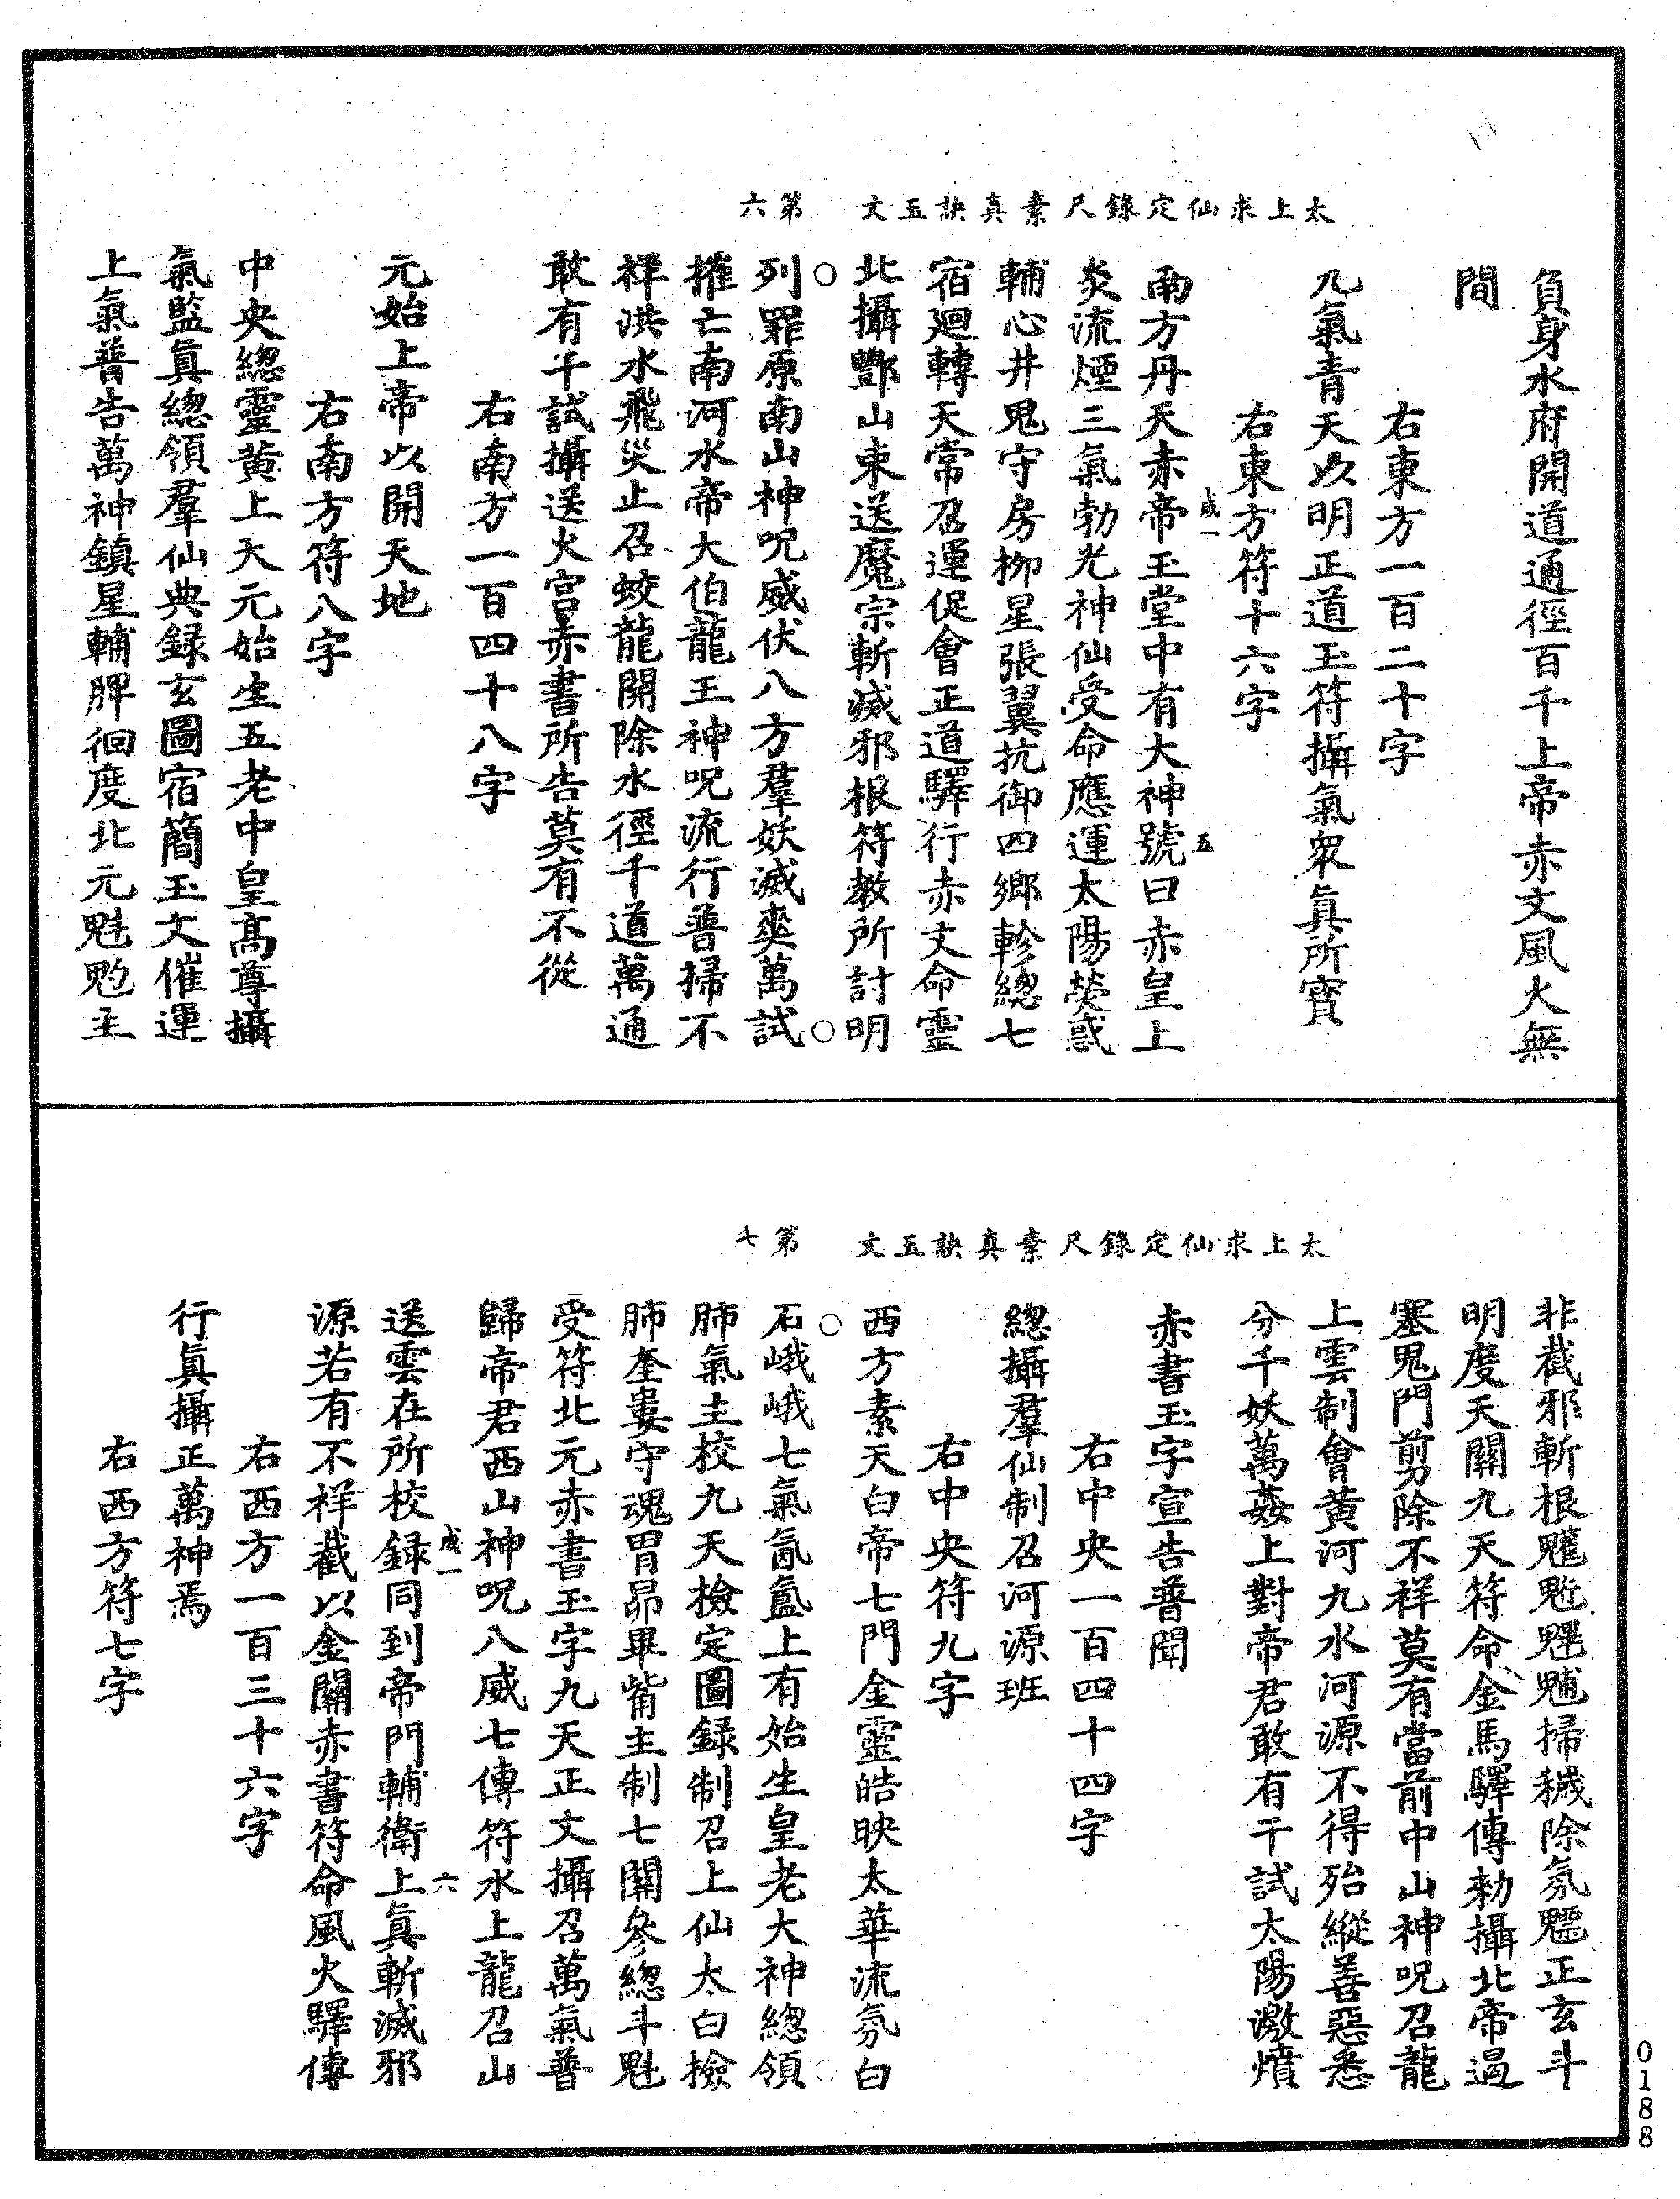 太上求仙定錄尺素真訣玉文　第六
負身水府開道通徑百千上帝赤文風火無
間
右東方一百二十字
九氣青天以明正道玉符攝氣眾真所寶
右東方符十六字
咸一
五
南方丹天赤帝玉堂中有大神號曰赤皇上
炎流煙三氣勃光神仙受命應運太陽熒惑
輔心井鬼守房柳星張翼抗御四鄉軫總七
宿廻轉天常召運促會正道驛行赤文命靈
北攝酆山束送魔宗斬滅邪根符教所討明
列罪原南山神呪威伏八方羣妖滅爽萬試
摧亡南河水帝大伯龍王神呪流行普掃不
祥洪水飛災止召蛟龍開除水徑千道萬通
敢有干試攝送火宮赤書所告莫有不從
右南方一百四十八字
元始上帝以開天地
右南方符八字
中央總靈黃上天元始生五老中皇高尊攝
氣監真總領羣仙典録玄圖宿簡玉文催運
上氣普告萬神鎮星輔脾徊度北元魁魁主
太上求仙定錄尺素真訣玉文　第七
非截邪斬根䰢魓魒掃穢除氛魒正玄斗
明度天關九天符命金馬驛傳勑攝北帝遏
塞鬼門剪除不祥莫有當前中山神呪召龍
上雲制會黃河九水河源不得殆縱善惡悉
分千妖萬姦上對帝君敢有干試太陽激憤
赤書玉字宣告普聞
右中央一百四十四字
總攝羣仙制召河源班
右中央符九字
西方素天白帝七門金靈皓映太華流氛白
石峨峨七氣氤氳上有始生皇老大神總領
肺氣主校九天檢定圖録制召上仙太白檢
肺奎婁守魂胃昴畢觜主制七關參總斗魁
受符北元赤書玉字九天正文攝召萬氣普
歸帝君西山神呪八威七傳符水上龍召山
咸一
六
送雲在所校録同到帝門輔衛上真斬滅邪
源若有不祥截以金關赤書符命風火驛傳
右西方一百三十六字
行真攝正萬神焉
右西方符七字
0188